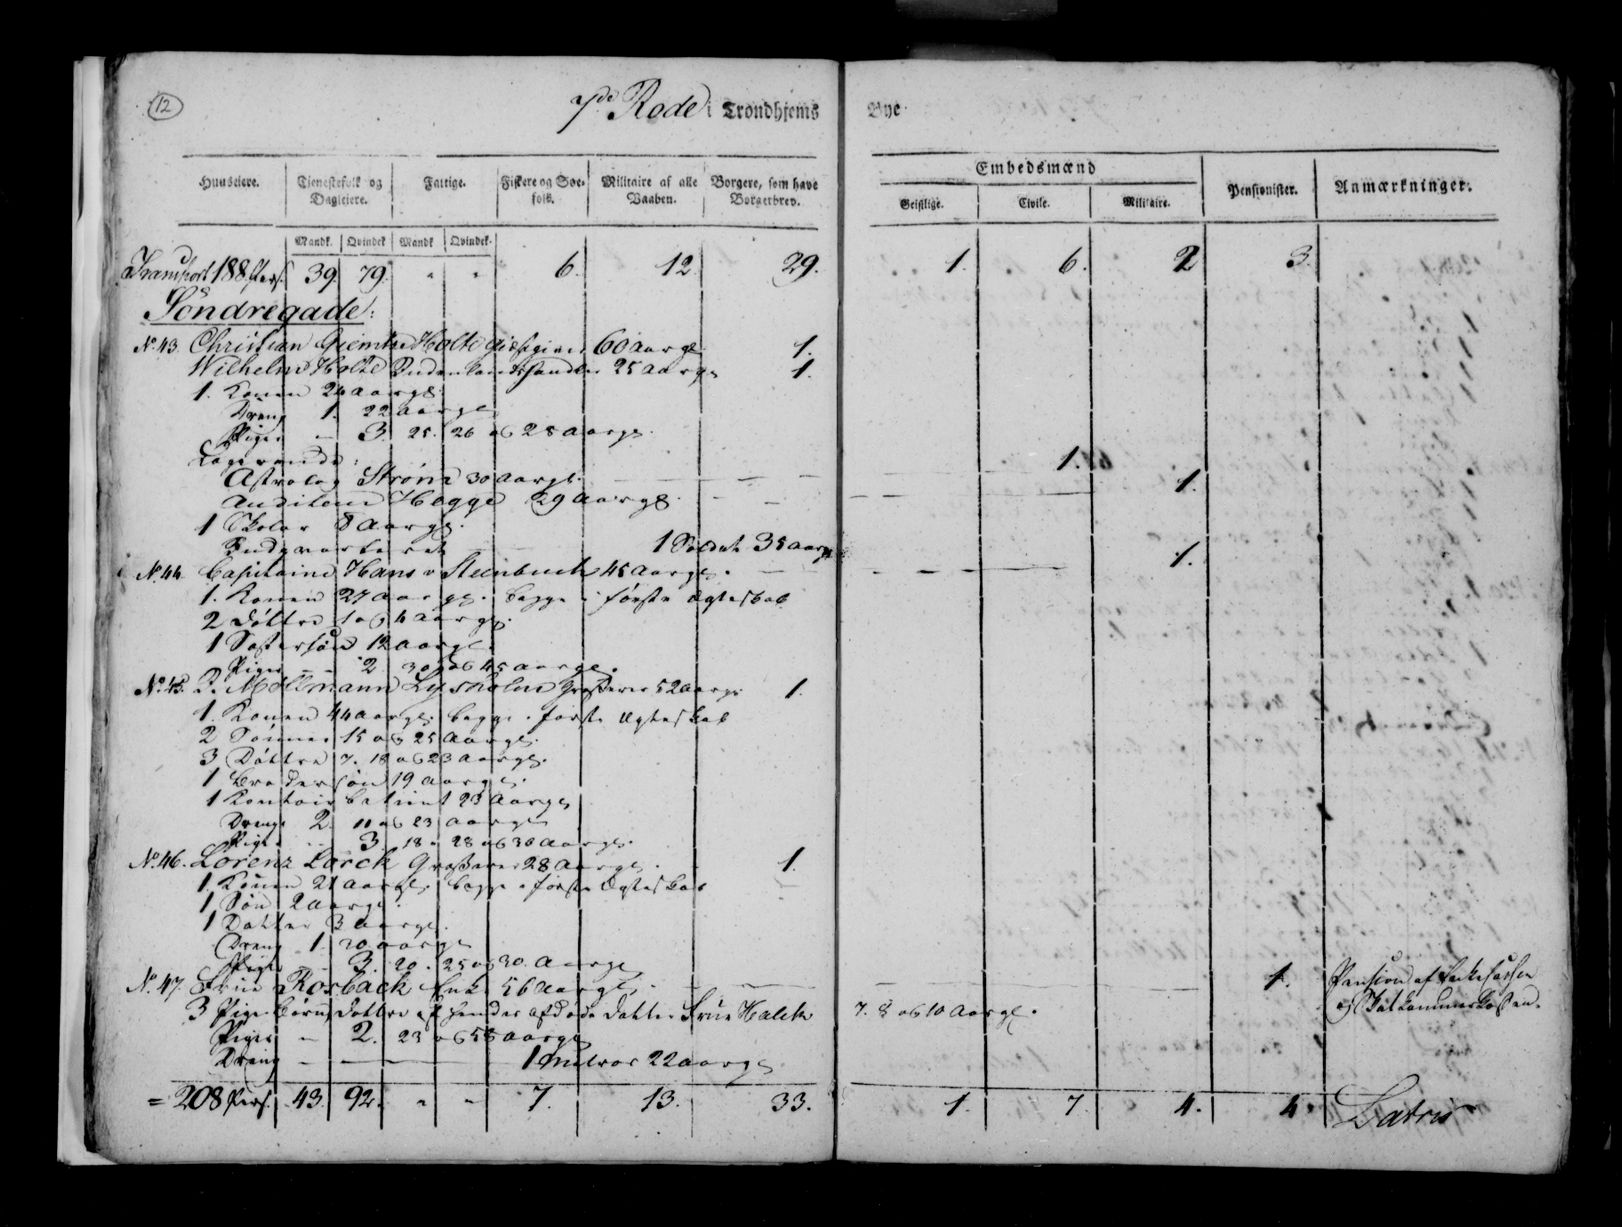 12
7de Rode i Trondhjems Bye
Huuseiere. Tjenestefolk og Dagleiere. Fattige. Fiskere og Søefolk. Militaire af alle Vaaben. Borgere, som have Borgerbrev. Embedsmænd Pensionister. Anmærkninger.
Geistlige. Civile. Militaire.
Mandk. Qvindek. Mandk. Qvindek.
Transport 188 Pers. 39. 79. " " 6. 12. 29. 1. 6. 2 3.
Søndregade:
No. 43. Christian Holte 60 aar gl. 1.
Wilhelm Holte 25 aar gl. 1.
1. Konen 24 aar gl.
Dreng 1. 22 aar gl.
Piger – 3. 25. 26 og 28 aar gl.
Logerende:
Strøm 30 aar gl. 1.
Auditeur Hagge 29 aar gl. 1.
1 8 aar gl.
Indqvarteret 1 Soldat 35 aar gl.
No. 44. Capitaine Hans v Steenbuch 45 aar gl. 1.
1. Konen 27 aar gl. begge i første Ægteskab
2 Døttre 1 og 4 aar gl.
1 Søstersøn 12 aar gl.
Piger – 2 30 og 45 aar gl.
No. 45. Möllmann Lysholm Grosserer 52 aar gl. 1.
1. Konen 44 aar gl. begge i første Ægteskab
2 Sønner 15 og 25 aar gl.
3 Døttre 7. 18 og 23 aar gl.
1 Brodersøn 19 aar gl.
1 Contoir betient 23 aar gl.
Drenge 2. 11 og 23 aar gl.
Piger – 3. 18. 28 og 30 aar gl.
No. 46. Lorenz Lorck Grosserer 28 aar gl. 1.
1. Konen 21 aar gl. begge i første Ægteskab
1 Søn 2 aar gl.
1 Datter 3 aar gl.
Dreng 1. 20 aar gl.
Piger – 3. 20. 25 og 30. aar gl.
No. 47. Frue Rosback Enke 56 aar gl. 1. Pension af
3 Pige Børn, Døttre af hendes afdøde Datter Frue Halck 7. 8 og 10 aar gl. og
Piger – 2. 23 og 58 aar gl.
Dreng – 1 Matros 22 aar gl.
= 208 Pers. 43. 92. " " 7. 13. 33. 1. 7. 4. 4. Latris